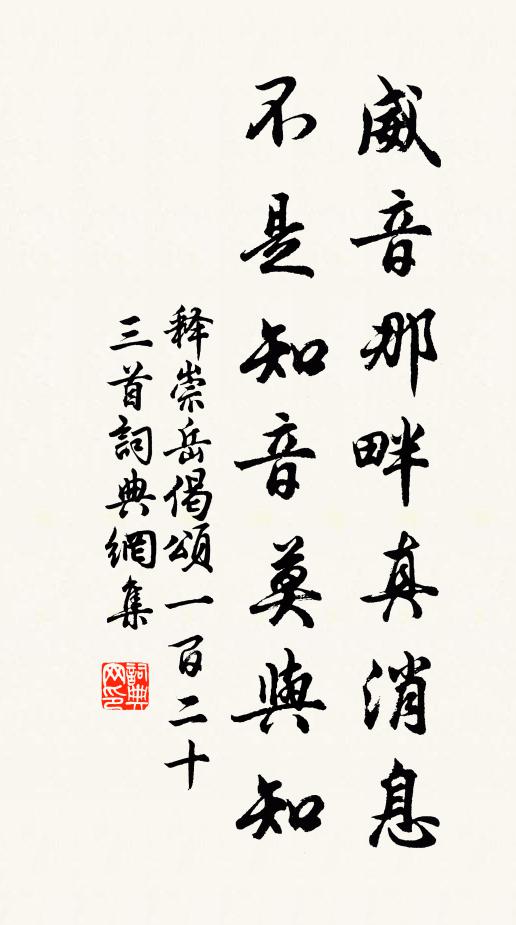 威音那畔真消息
不是知音莫與知
释崇岳偈頌一百二十
三首詞典網集
詞典
网印